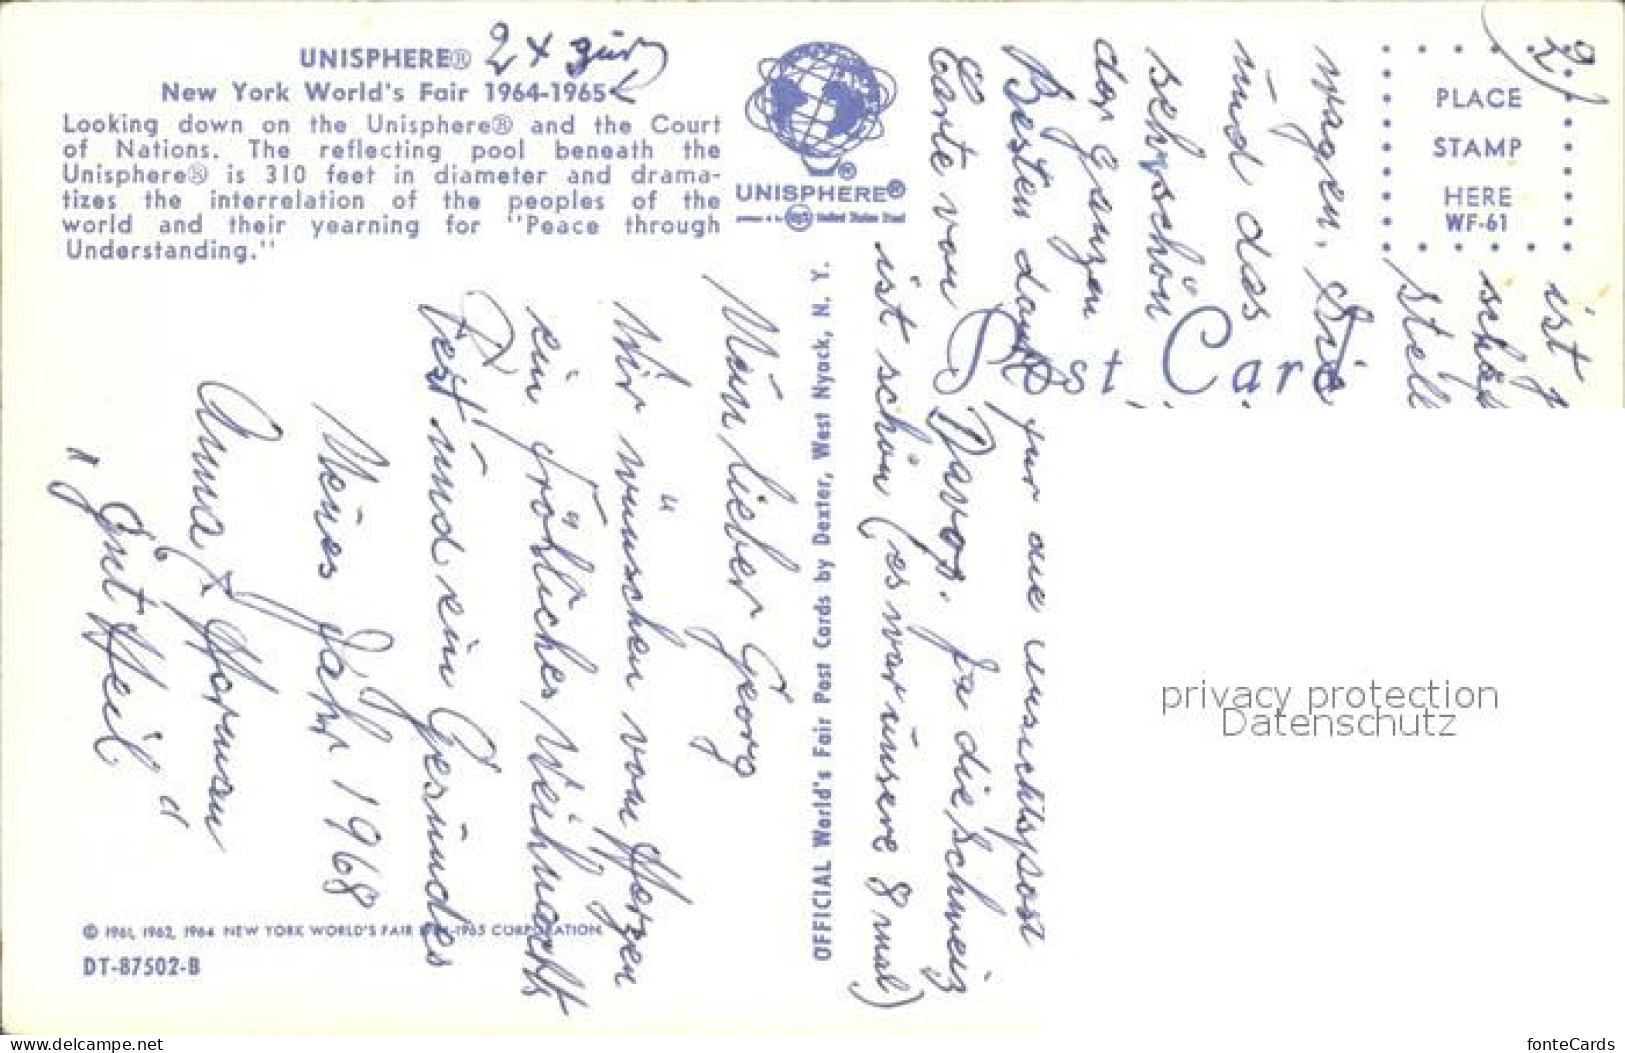 UNISPHERE®
New York World's Fair 1964-1965
Looking down on the Unisphere® and the Court
of Nations. The reflecting pool beneath the
Unisphere® is 310 feet in diameter and drama-
tizes the interrelation of the peoples of the
world and their yearning for "Peace through
Understanding."
2 x
UNISPHERE®
United States Steel
PLACE
STAMP
HERE
WF-61
Post Card
OFFICIAL World's Fair Post Cards by Dexter, West Nyack, N. Y.
Mein lieber Georg
Wir wünschen von Herzen
ein fröhliches Weihnachts
Fest und ein Gesundes
Neues Jahr 1968
Anna & Herman
"Gut Heil"
2)
ist
Stell
wagen. Sie
und das
sehr schön
der ganzen
Besten dank für die Ansichtspost
Carte von Davos. Ja die Schweiz
ist schön (es war unsere 8 mal)
© 1961, 1962, 1964 NEW YORK WORLD'S FAIR 1964-1965 CORPORATION
DT-87502-B
privacy protection
Datenschutz
www.delcampe.net
fonteCards